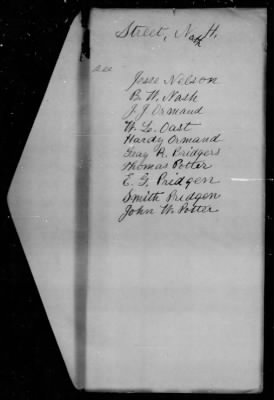 Street, Nath H.
see
Jesse Nelson
B. W. Nash
J. J Ormand
W. L. Oast
Hardy Ormand
Gray R. Bridgers
Thomas Potter
E. G. Pridgen
Smith Pridgen
John W. Potter